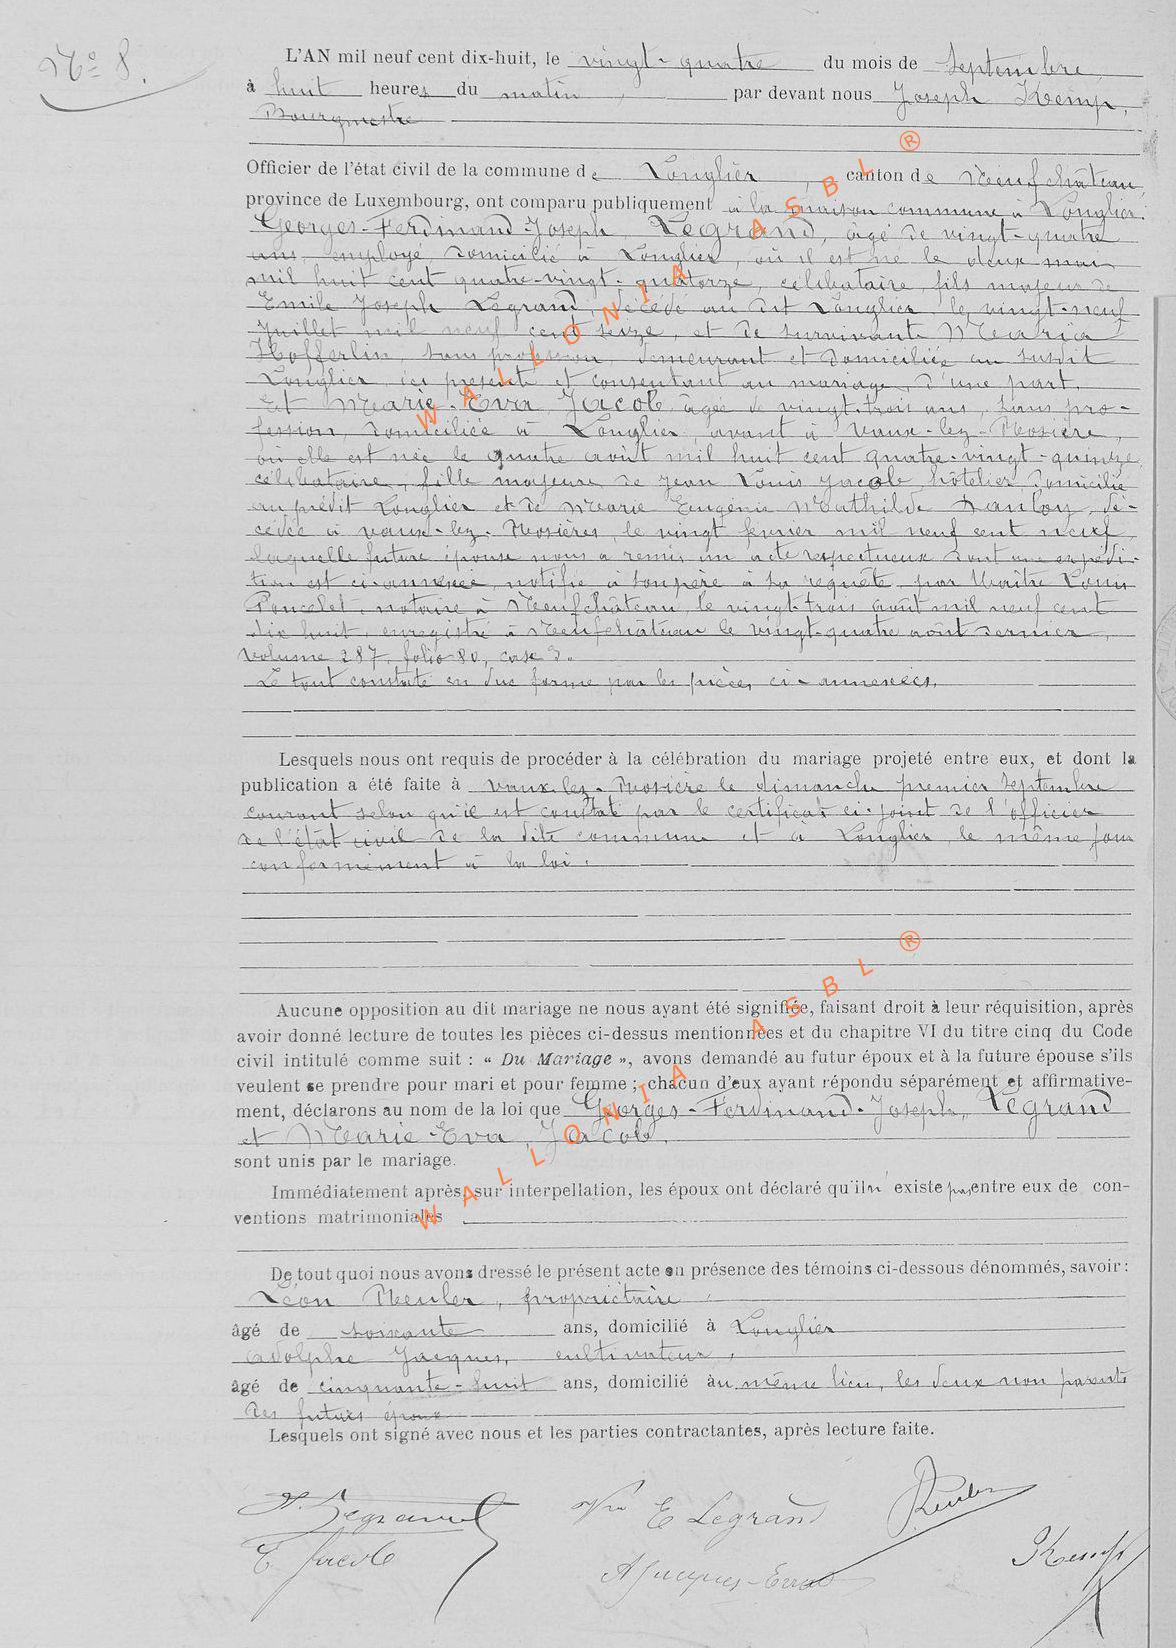 N° 8.
L'AN mil neuf cent dix-huit, le vingt-quatre du mois de Septembre,
à huit heures du matin, par devant nous Joseph Kemp,
Bourgmestre
Officier de l'état civil de la commune de Longlier, canton de Neufchâteau,
province de Luxembourg, ont comparu publiquement à la maison commune à Longlier.
Georges-Ferdinand-Joseph, Legrand, âgé de vingt-quatre
ans, employé, domicilié à Longlier, où il est né le deux mai
mil huit cent quatre-vingt-quatorze, célibataire, fils majeur de
Emile Joseph Legrand, décédé au dit Longlier le vingt-neuf
Juillet mil neuf cent seize, et de survivante Maria
Hofferlin, sans profession, demeurant et domiciliée au susdit
Longlier, ici présente et consentant au mariage, d'une part.
Et Marie-Eva, Jacob, âgée de vingt-trois ans, sans pro-
fession, domiciliée à Longlier, avant à Vaux-lez-Rosière,
où elle est née le quatre août mil huit cent quatre-vingt-quinze
célibataire, fille majeure de Jean Louis Jacob, hôtelier domicilié
au prédit Longlier et de Marie Eugénie Mathilde Danloy, dé-
cédée à Vaux-lez-Rosières, le vingt février mil neuf cent neuf,
laquelle future épouse nous a remis un acte respectueux dont une expédi-
tion est ci-annexée, notifié à son père à sa requête par Maître Louis
Poncelet, notaire à Neufchâteau, le vingt-trois août mil neuf cent
dix huit, enregistré à Neufchâteau le vingt-quatre août dernier,
volume 287, folio 80, case 3.
Le tout constaté en due forme par les pièces ci-annexées.
Lesquels nous ont requis de procéder à la célébration du mariage projeté entre eux, et dont la
publication a été faite à Vaux-lez-Rosière le dimanche premier Septembre
courant selon qu'il est constaté par le certificat ci-joint de l'officier
de l'état civil de la dite commune et à Longlier le même jour
conformément à la loi.
Aucune opposition au dit mariage ne nous ayant été signifiée, faisant droit à leur réquisition, après
avoir donné lecture de toutes les pièces ci-dessus mentionnées et du chapitre VI du titre cinq du Code
civil intitulé comme suit : « Du Mariage », avons demandé au futur époux et à la future épouse s'ils
veulent se prendre pour mari et pour femme ; chacun d'eux ayant répondu séparément et affirmative-
ment, déclarons au nom de la loi que Georges-Ferdinand-Joseph, Legrand
et Marie-Eva, Jacob,
sont unis par le mariage.
Immédiatement après, sur interpellation, les époux ont déclaré qu'il n'existe pas entre eux de con-
ventions matrimoniales
De tout quoi nous avons dressé le présent acte en présence des témoins ci-dessous dénommés, savoir :
Léon Reuler, propriétaire,
âgé de soixante ans, domicilié à Longlier
Adolphe Jacques, cultivateur,
âgé de cinquante-huit ans, domicilié au même lieu, les deux non parents
des futurs époux
Lesquels ont signé avec nous et les parties contractantes, après lecture faite.
Legrand Vve E Legrand Reuler
E. Jacob A Jacques J Kemp
WALLONIA ASBL ®
WALLONIA ASBL ®